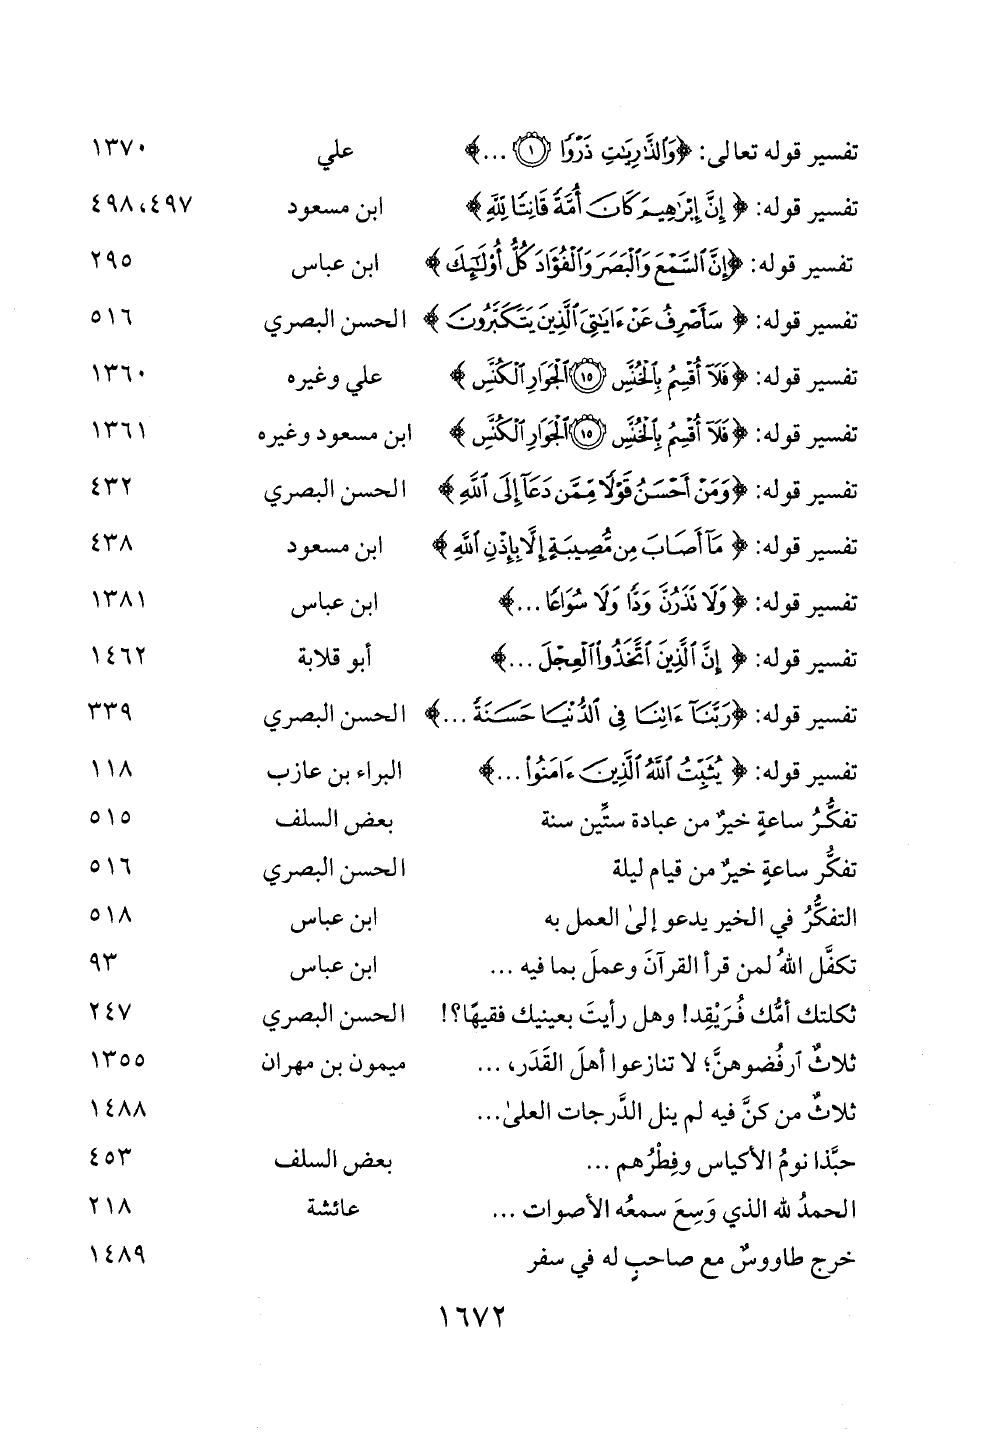 تفسير قوله تعالى: ﴿وَٱلذَّٰرِيَٰتِ ذَرْوًا ١ ...﴾ علي ١٣٧٠
تفسير قوله: ﴿إِنَّ إِبْرَٰهِيمَ كَانَ أُمَّةً قَانِتًا لِلَّهِ﴾ ابن مسعود ٤٩٧، ٤٩٨
تفسير قوله: ﴿إِنَّ ٱلسَّمْعَ وَٱلْبَصَرَ وَٱلْفُؤَادَ كُلُّ أُوْلَٰٓئِكَ﴾ ابن عباس ٢٩٥
تفسير قوله: ﴿سَأَصْرِفُ عَنْ ءَايَٰتِيَ ٱلَّذِينَ يَتَكَبَّرُونَ﴾ الحسن البصري ٥١٦
تفسير قوله: ﴿فَلَآ أُقْسِمُ بِٱلْخُنَّسِ ١٥ ٱلْجَوَارِ ٱلْكُنَّسِ﴾ علي وغيره ١٣٦٠
تفسير قوله: ﴿فَلَآ أُقْسِمُ بِٱلْخُنَّسِ ١٥ ٱلْجَوَارِ ٱلْكُنَّسِ﴾ ابن مسعود وغيره ١٣٦١
تفسير قوله: ﴿وَمَنْ أَحْسَنُ قَوْلًا مِّمَّن دَعَآ إِلَى ٱللَّهِ﴾ الحسن البصري ٤٣٢
تفسير قوله: ﴿مَآ أَصَابَ مِن مُّصِيبَةٍ إِلَّا بِإِذْنِ ٱللَّهِ﴾ ابن مسعود ٤٣٨
تفسير قوله: ﴿وَلَا تَذَرُنَّ وَدًّا وَلَا سُوَاعًا ...﴾ ابن عباس ١٣٨١
تفسير قوله: ﴿إِنَّ ٱلَّذِينَ ٱتَّخَذُواْ ٱلْعِجْلَ ...﴾ أبو قلابة ١٤٦٢
تفسير قوله: ﴿رَبَّنَآ ءَاتِنَا فِى ٱلدُّنْيَا حَسَنَةً ...﴾ الحسن البصري ٣٣٩
تفسير قوله: ﴿يُثَبِّتُ ٱللَّهُ ٱلَّذِينَ ءَامَنُواْ ...﴾ البراء بن عازب ١١٨
تفكُّرُ ساعةٍ خيرٌ من عبادة ستِّين سنة بعض السلف ٥١٥
تفكُّر ساعةٍ خيرٌ من قيام ليلة الحسن البصري ٥١٦
التفكُّرُ في الخير يدعو إلىٰ العمل به ابن عباس ٥١٨
تكفَّل اللهُ لمن قرأ القرآنَ وعملَ بما فيه ... ابن عباس ٩٣
ثكلتك أمُّك فُرَيْقِد! وهل رأيتَ بعينيك فقيهًا؟! الحسن البصري ٢٤٧
ثلاثٌ ٱرفُضوهنَّ؛ لا تنازعوا أهلَ القَدَر، ... ميمون بن مهران ١٣٥٥
ثلاثٌ من كنَّ فيه لم ينل الدَّرجات العلىٰ... ١٤٨٨
حبَّذا نومُ الأكياس وفِطْرُهم ... بعض السلف ٤٥٣
الحمدُ لله الذي وَسِعَ سمعُه الأصوات ... عائشة ٢١٨
خرج طاووسٌ مع صاحبٍ له في سفر ١٤٨٩
١٦٧٢